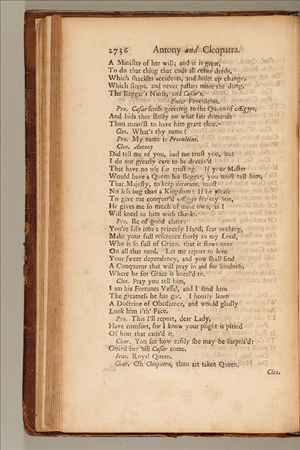 2736 Antony and Cleopatra.
A Minister of her will; and it is great,
To do that thing that ends all other deeds,
Which shackles accidents, and bolts up change,
Which sleeps, and never pallats more the dung,
The Beggar's Nurse, and Cæsar's.
Enter Proculeius.
Pro. Cæsar sends greeting to the Queen of Ægypt,
And bids thee study on what fair demands
Thou mean'st to have him grant thee.
Cleo. What's thy name?
Pro. My name is Proculeius.
Cleo. Antony
Did tell me of you, bad me trust you, but
I do not greatly care to be deceiv'd
That have no use for trusting. If your Master
Would have a Queen his Beggar, you must tell him,
That Majesty, to keep decorum, must
No less beg than a Kingdom: If he please
To give me conquer'd Ægypt for my Son,
He gives me so much of mine own, as I
Will kneel to him with thanks.
Pro. Be of good cheer:
You're faln into a princely Hand, fear nothing,
Make your full reference freely to my Lord,
Who is so full of Grace, that it flows over
On all that need. Let me report to him
Your sweet dependency, and you shall find
A Conqueror that will pray in aid for kindness,
Where he for Grace is kneel'd to.
Cleo. Pray you tell him,
I am his Fortunes Vassal, and I send him
The greatness he has got. I hourly learn
A Doctrine of Obedience, and would gladly
Look him i'th' Face.
Pro. This I'll report, dear Lady,
Have comfort, for I know your plight is pitied
Of him that caus'd it.
Char. You see how easily she may be surpriz'd:
Guard her 'till Cæsar come.
Iras. Royal Queen.
Char. Oh Cleopatra, thou art taken Queen.
Cleo.